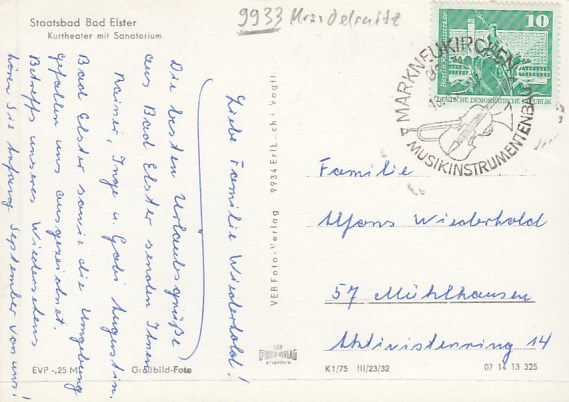 Staatsbad Bad Elster
Kurtheater mit Sanatorium
9933
Liebe Familie Wiederhold!
Die besten Urlaubsgrüße
aus Bad Elster senden Ihnen
Rainer, Inge u. Gabi Augustin.
Bad Elster sowie die Umgebung
gefallen uns ausgezeichnet.
Betreffs unseres Wiedersehens
hören Sie Anfang September von uns!
EVP -,25 M
Großbild-Foto
VEB Foto-Verlag 9934 Erlbach i. Vogtl.
10
DEUTSCHE DEMOKRATISCHE REPUBLIK
MARKNEUKIRCHEN
MUSIKINSTRUMENTENBAU
Familie
Alfons Wiederhold
57 Mühlhausen
Aktivistenring 14
K1/75 III/23/32
07 14 13 325